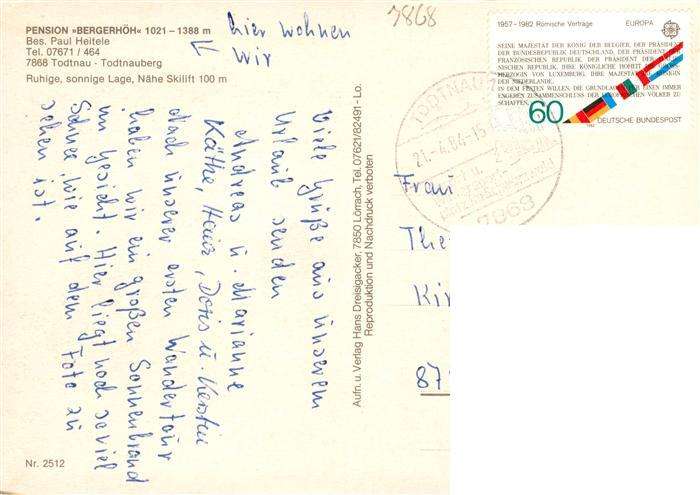 PENSION »BERGERHÖH« 1021 – 1388 m
Bes. Paul Heitele
Tel. 07671 / 464
7868 Todtnau · Todtnauberg
Ruhige, sonnige Lage, Nähe Skilift 100 m
hier wohnen
wir
7868
1957 - 1982 Römische Verträge EUROPA
SEINE MAJESTÄT DER KÖNIG DER BELGIER, DER PRÄSIDENT
DER BUNDESREPUBLIK DEUTSCHLAND, DER PRÄSIDENT DER
FRANZÖSISCHEN REPUBLIK, DER PRÄSIDENT DER ITALIENISCHEN
REPUBLIK, IHRE KÖNIGLICHE HOHEIT
HERZOGIN VON LUXEMBURG, IHRE MAJESTÄT
DER NIEDERLANDE,
IN DEM FESTEN WILLEN, DIE GRUNDLAGEN FÜR EINEN IMMER
ENGEREN ZUSAMMENSCHLUSS DER EUROPÄISCHEN VÖLKER ZU
SCHAFFEN,
60
DEUTSCHE BUNDESPOST
TODTNAU
21.-4.84-15
7868
Viele Grüße aus unserem
Urlaub senden
Andreas u. Marianne
Käthe, Heinz, Doris u. Kerstin
Nach unserer ersten Wandertour
haben wir ein großen Sonnenbrand
im Gesicht. Hier liegt noch soviel
Schnee, wie auf dem Foto zu
sehen ist.
Aufn. u. Verlag Hans Dreisigacker, 7850 Lörrach, Tel. 07621/82491 - Lo.
Reproduktion und Nachdruck verboten
Frau
The
Kir
87
Nr. 2512